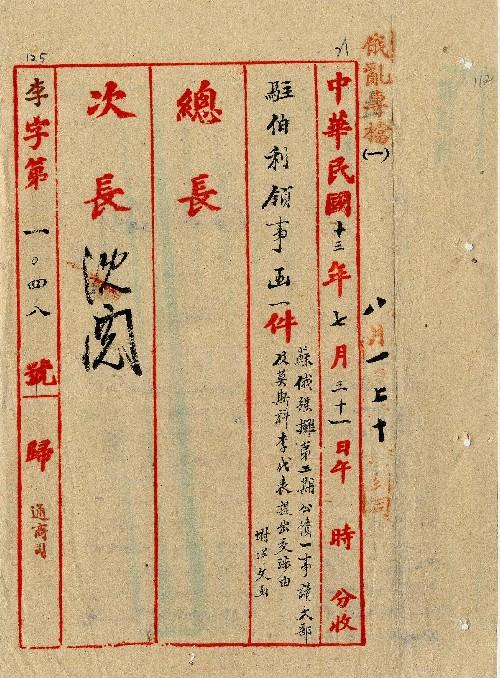 俄亂專檔(一)
八月一 上十
中華民國十三年七月三十一日午 時 分收
駐伯利領事函一件
蘇俄強攤第二期公債一事請大部
及莫斯科李代表提出交涉由
附洋文函
總長
次長 沈閱
李字第一〇四八號 歸 通商司
125